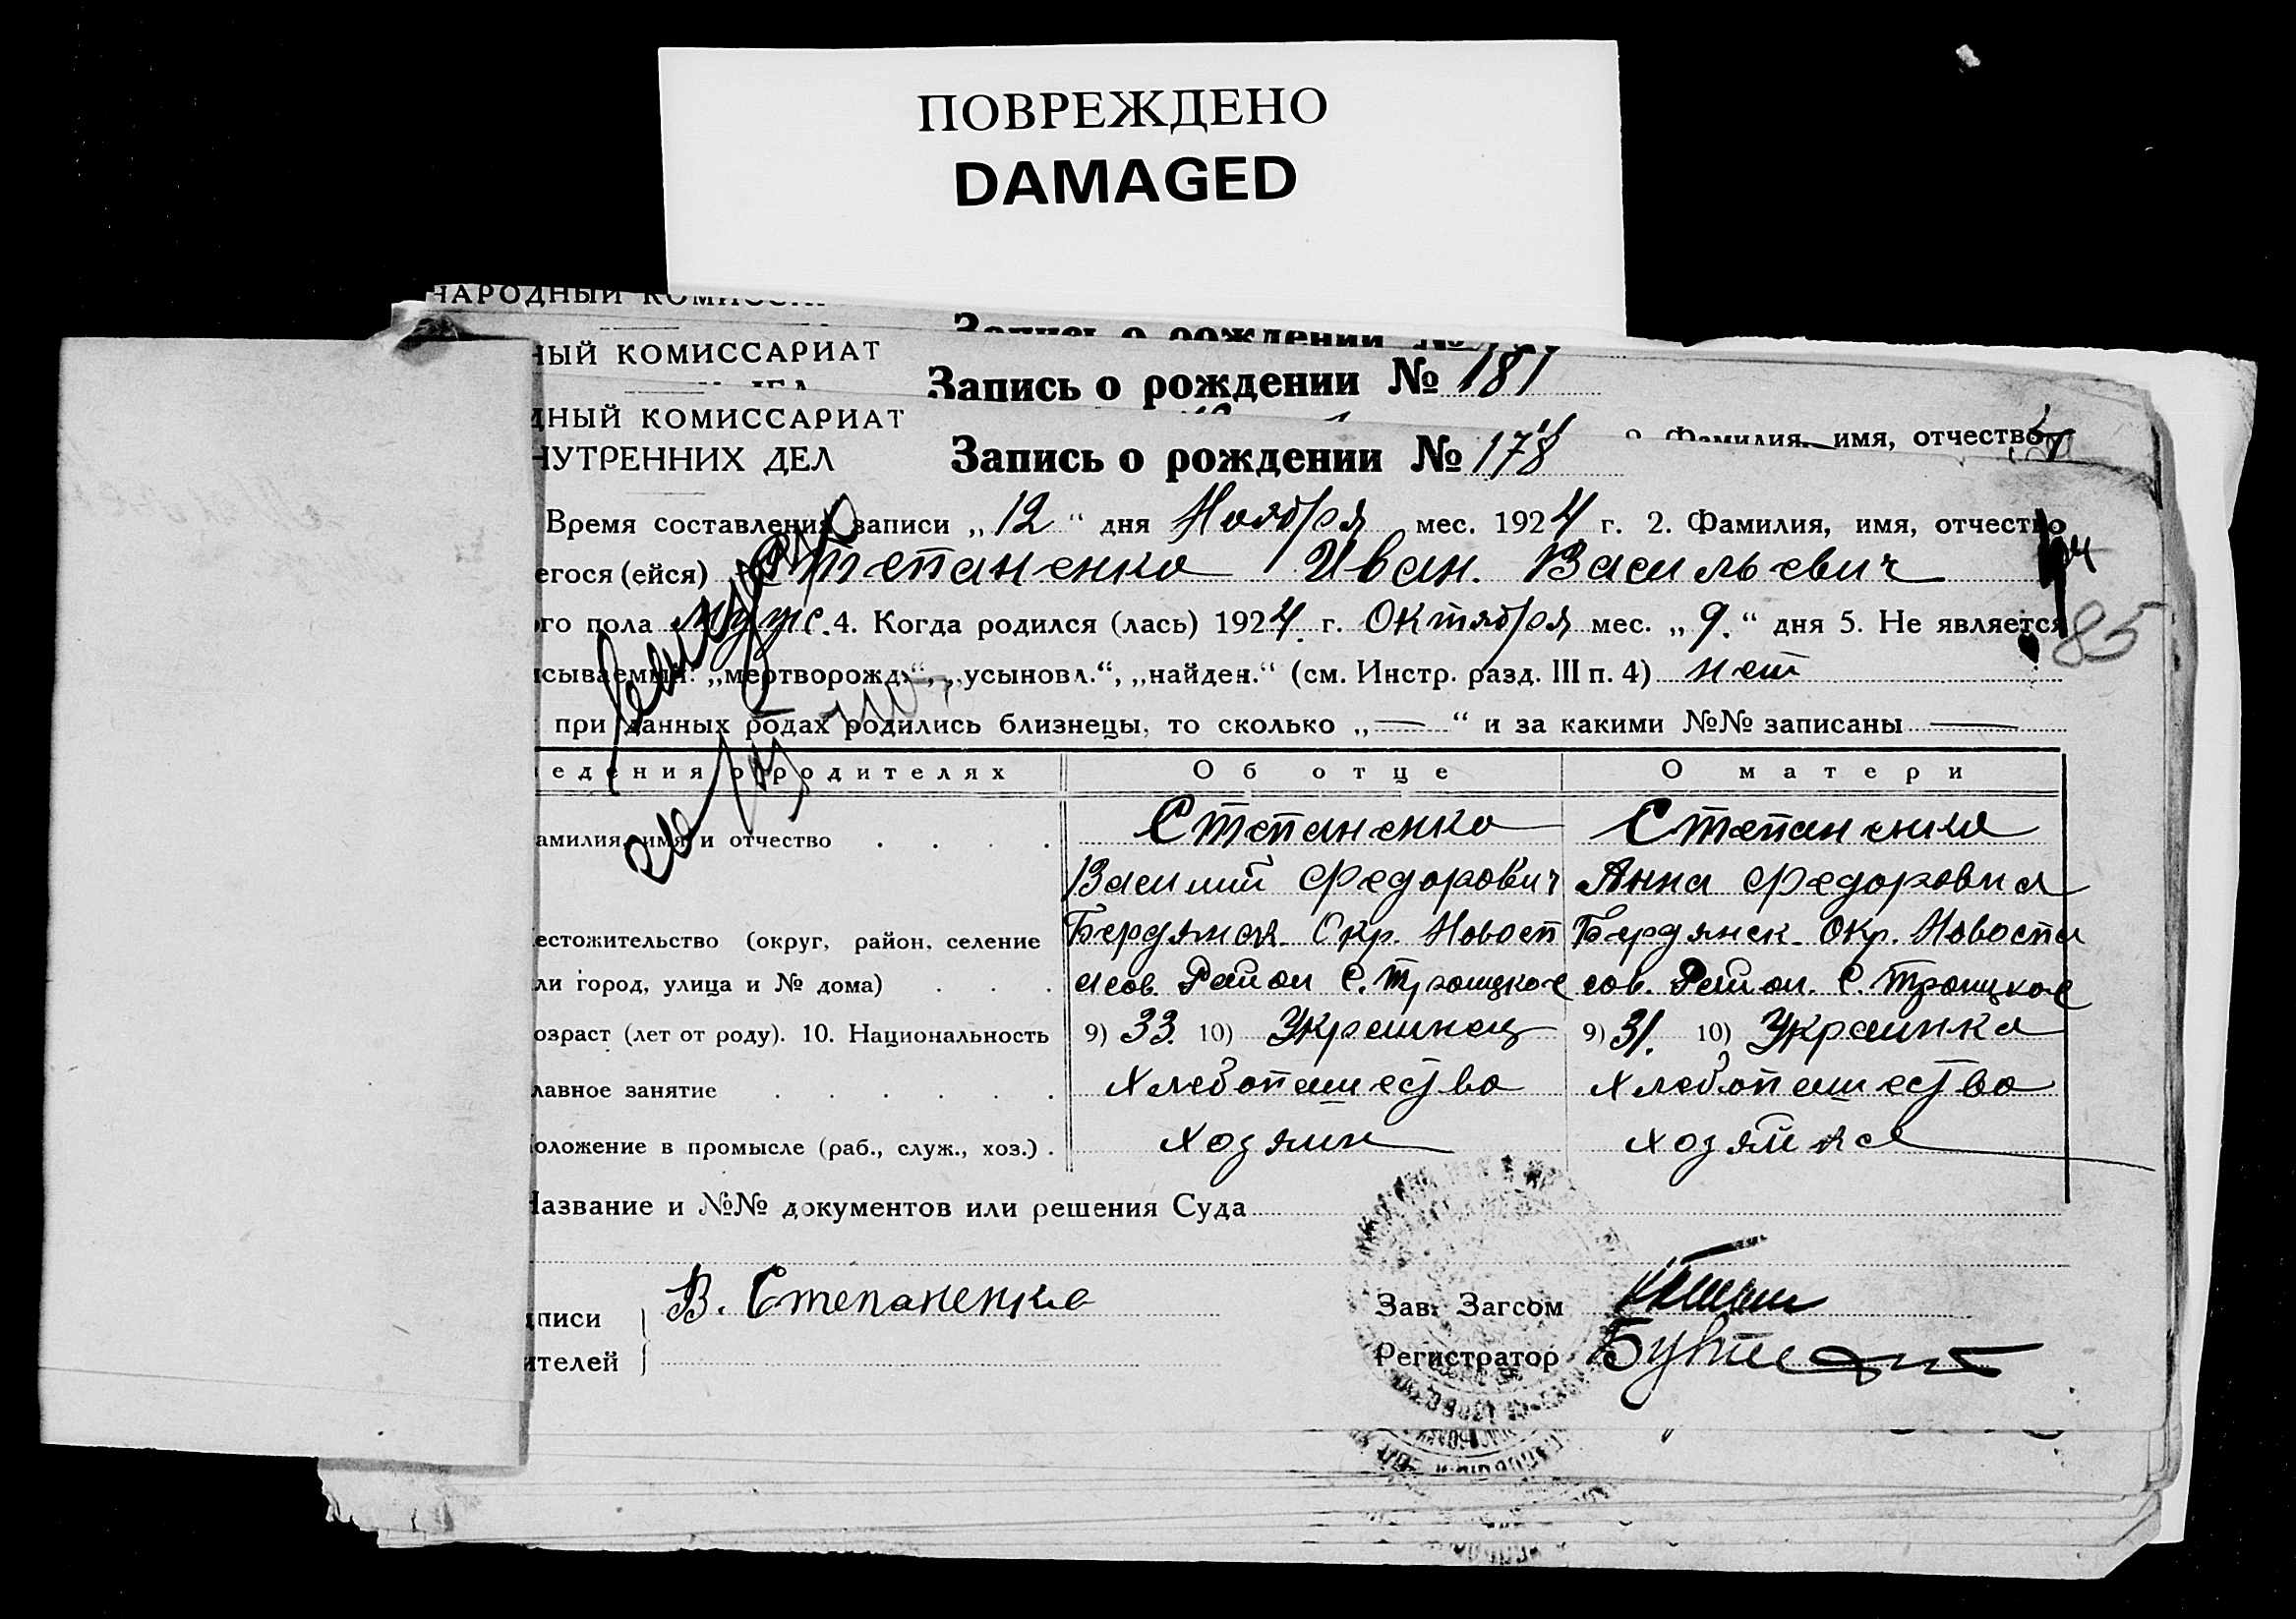 ПОВРЕЖДЕНО
DAMAGED
НАРОДНЫЙ
Запись о рождении №
НЫЙ КОМИССАРИАТ
Запись о рождении № 181
2. Фамилия, имя, отчество
ДНЫЙ КОМИССАРИАТ
НУТРЕННИХ ДЕЛ
Запись о рождении № 178
Время составления записи „12“ дня Ноября мес. 1924 г. 2. Фамилия, имя, отчество
егося (ейся) Степаненко Иван. Васильевич
го пола муж. 4. Когда родился (лась) 1924. г. Октября мес. „9.“ дня 5. Не является
85
исываемый: „мертворожд.“, „усыновл.“, „найден.“ (см. Инстр. разд. III п. 4) нет
при данных родах родились близнецы, то сколько „—“ и за какими №№ записаны —
ведения о родителях Об отце О матери
амилия, имя и отчество . . . . Степаненко Степаненко
Василий Федорович Анна Федоровна
естожительство (округ, район, селение Бердянск. Окр. Новосп Бердянск. Окр. Новоспа
ли город, улица и № дома) . . . асов. Район С. Троицкое сов. Район. С. Троицкое
озраст (лет от роду). 10. Национальность 9) 33. 10) Украинец 9) 31. 10) Украинка
лавное занятие . . . . . . Хлебопашество Хлебопашество
оложение в промысле (раб., служ., хоз.) . хозяин хозяйка
Название и №№ документов или решения Суда
писи В. Степаненко Зав. Загсом
ителей Регистратор